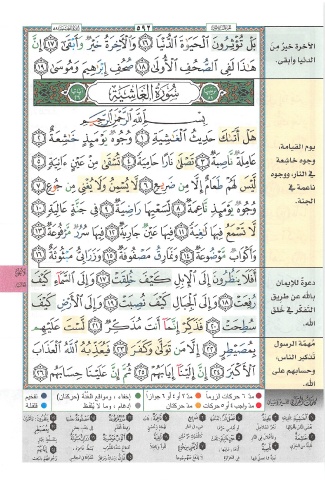 ٥٩٢
بَلْ تُؤْثِرُونَ الْحَيَوٰةَ الدُّنْيَا ١٦ وَالْآخِرَةُ خَيْرٌ وَأَبْقَىٰٓ ١٧ إِنَّ
هَٰذَا لَفِي الصُّحُفِ الْأُولَىٰ ١٨ صُحُفِ إِبْرَٰهِيمَ وَمُوسَىٰ ١٩
سُورَةُ الْغَاشِيَةِ
بِسْمِ اللَّهِ الرَّحْمَٰنِ الرَّحِيمِ
هَلْ أَتَىٰكَ حَدِيثُ الْغَٰشِيَةِ ١ وُجُوهٌ يَوْمَئِذٍ خَٰشِعَةٌ ٢
عَامِلَةٌ نَّاصِبَةٌ ٣ تَصْلَىٰ نَارًا حَامِيَةً ٤ تُسْقَىٰ مِنْ عَيْنٍ ءَانِيَةٍ ٥
لَّيْسَ لَهُمْ طَعَامٌ إِلَّا مِن ضَرِيعٍ ٦ لَّا يُسْمِنُ وَلَا يُغْنِي مِن جُوعٍ ٧
وُجُوهٌ يَوْمَئِذٍ نَّاعِمَةٌ ٨ لِّسَعْيِهَا رَاضِيَةٌ ٩ فِي جَنَّةٍ عَالِيَةٍ ١٠
لَّا تَسْمَعُ فِيهَا لَٰغِيَةً ١١ فِيهَا عَيْنٌ جَارِيَةٌ ١٢ فِيهَا سُرُرٌ مَّرْفُوعَةٌ ١٣
وَأَكْوَابٌ مَّوْضُوعَةٌ ١٤ وَنَمَارِقُ مَصْفُوفَةٌ ١٥ وَزَرَابِيُّ مَبْثُوثَةٌ ١٦
أَفَلَا يَنظُرُونَ إِلَى الْإِبِلِ كَيْفَ خُلِقَتْ ١٧ وَإِلَى السَّمَآءِ كَيْفَ
رُفِعَتْ ١٨ وَإِلَى الْجِبَالِ كَيْفَ نُصِبَتْ ١٩ وَإِلَى الْأَرْضِ كَيْفَ
سُطِحَتْ ٢٠ فَذَكِّرْ إِنَّمَآ أَنتَ مُذَكِّرٌ ٢١ لَّسْتَ عَلَيْهِم
بِمُصَيْطِرٍ ٢٢ إِلَّا مَن تَوَلَّىٰ وَكَفَرَ ٢٣ فَيُعَذِّبُهُ اللَّهُ الْعَذَابَ
الْأَكْبَرَ ٢٤ إِنَّ إِلَيْنَآ إِيَابَهُمْ ٢٥ ثُمَّ إِنَّ عَلَيْنَا حِسَابَهُم ٢٦
الآخرة خير من
الدنيا وأبقى.
يوم القيامة،
وجوه خاشعة
في النار، ووجوه
ناعمة في
الجنة.
دعوة للإيمان
بالله عن طريق
التفكر في خلق
الله.
مهمة الرسول
تذكير الناس،
وحسابهم على
الله.
مد ٦ حركات لزوماً مد ٢ أو ٤ أو ٦ جوازاً إخفاء، ومواقع الغنة (حركتان) تفخيم
مد واجب ٤ أو ٥ حركات مد حركتان إدغام، وما لا يلفظ قلقلة